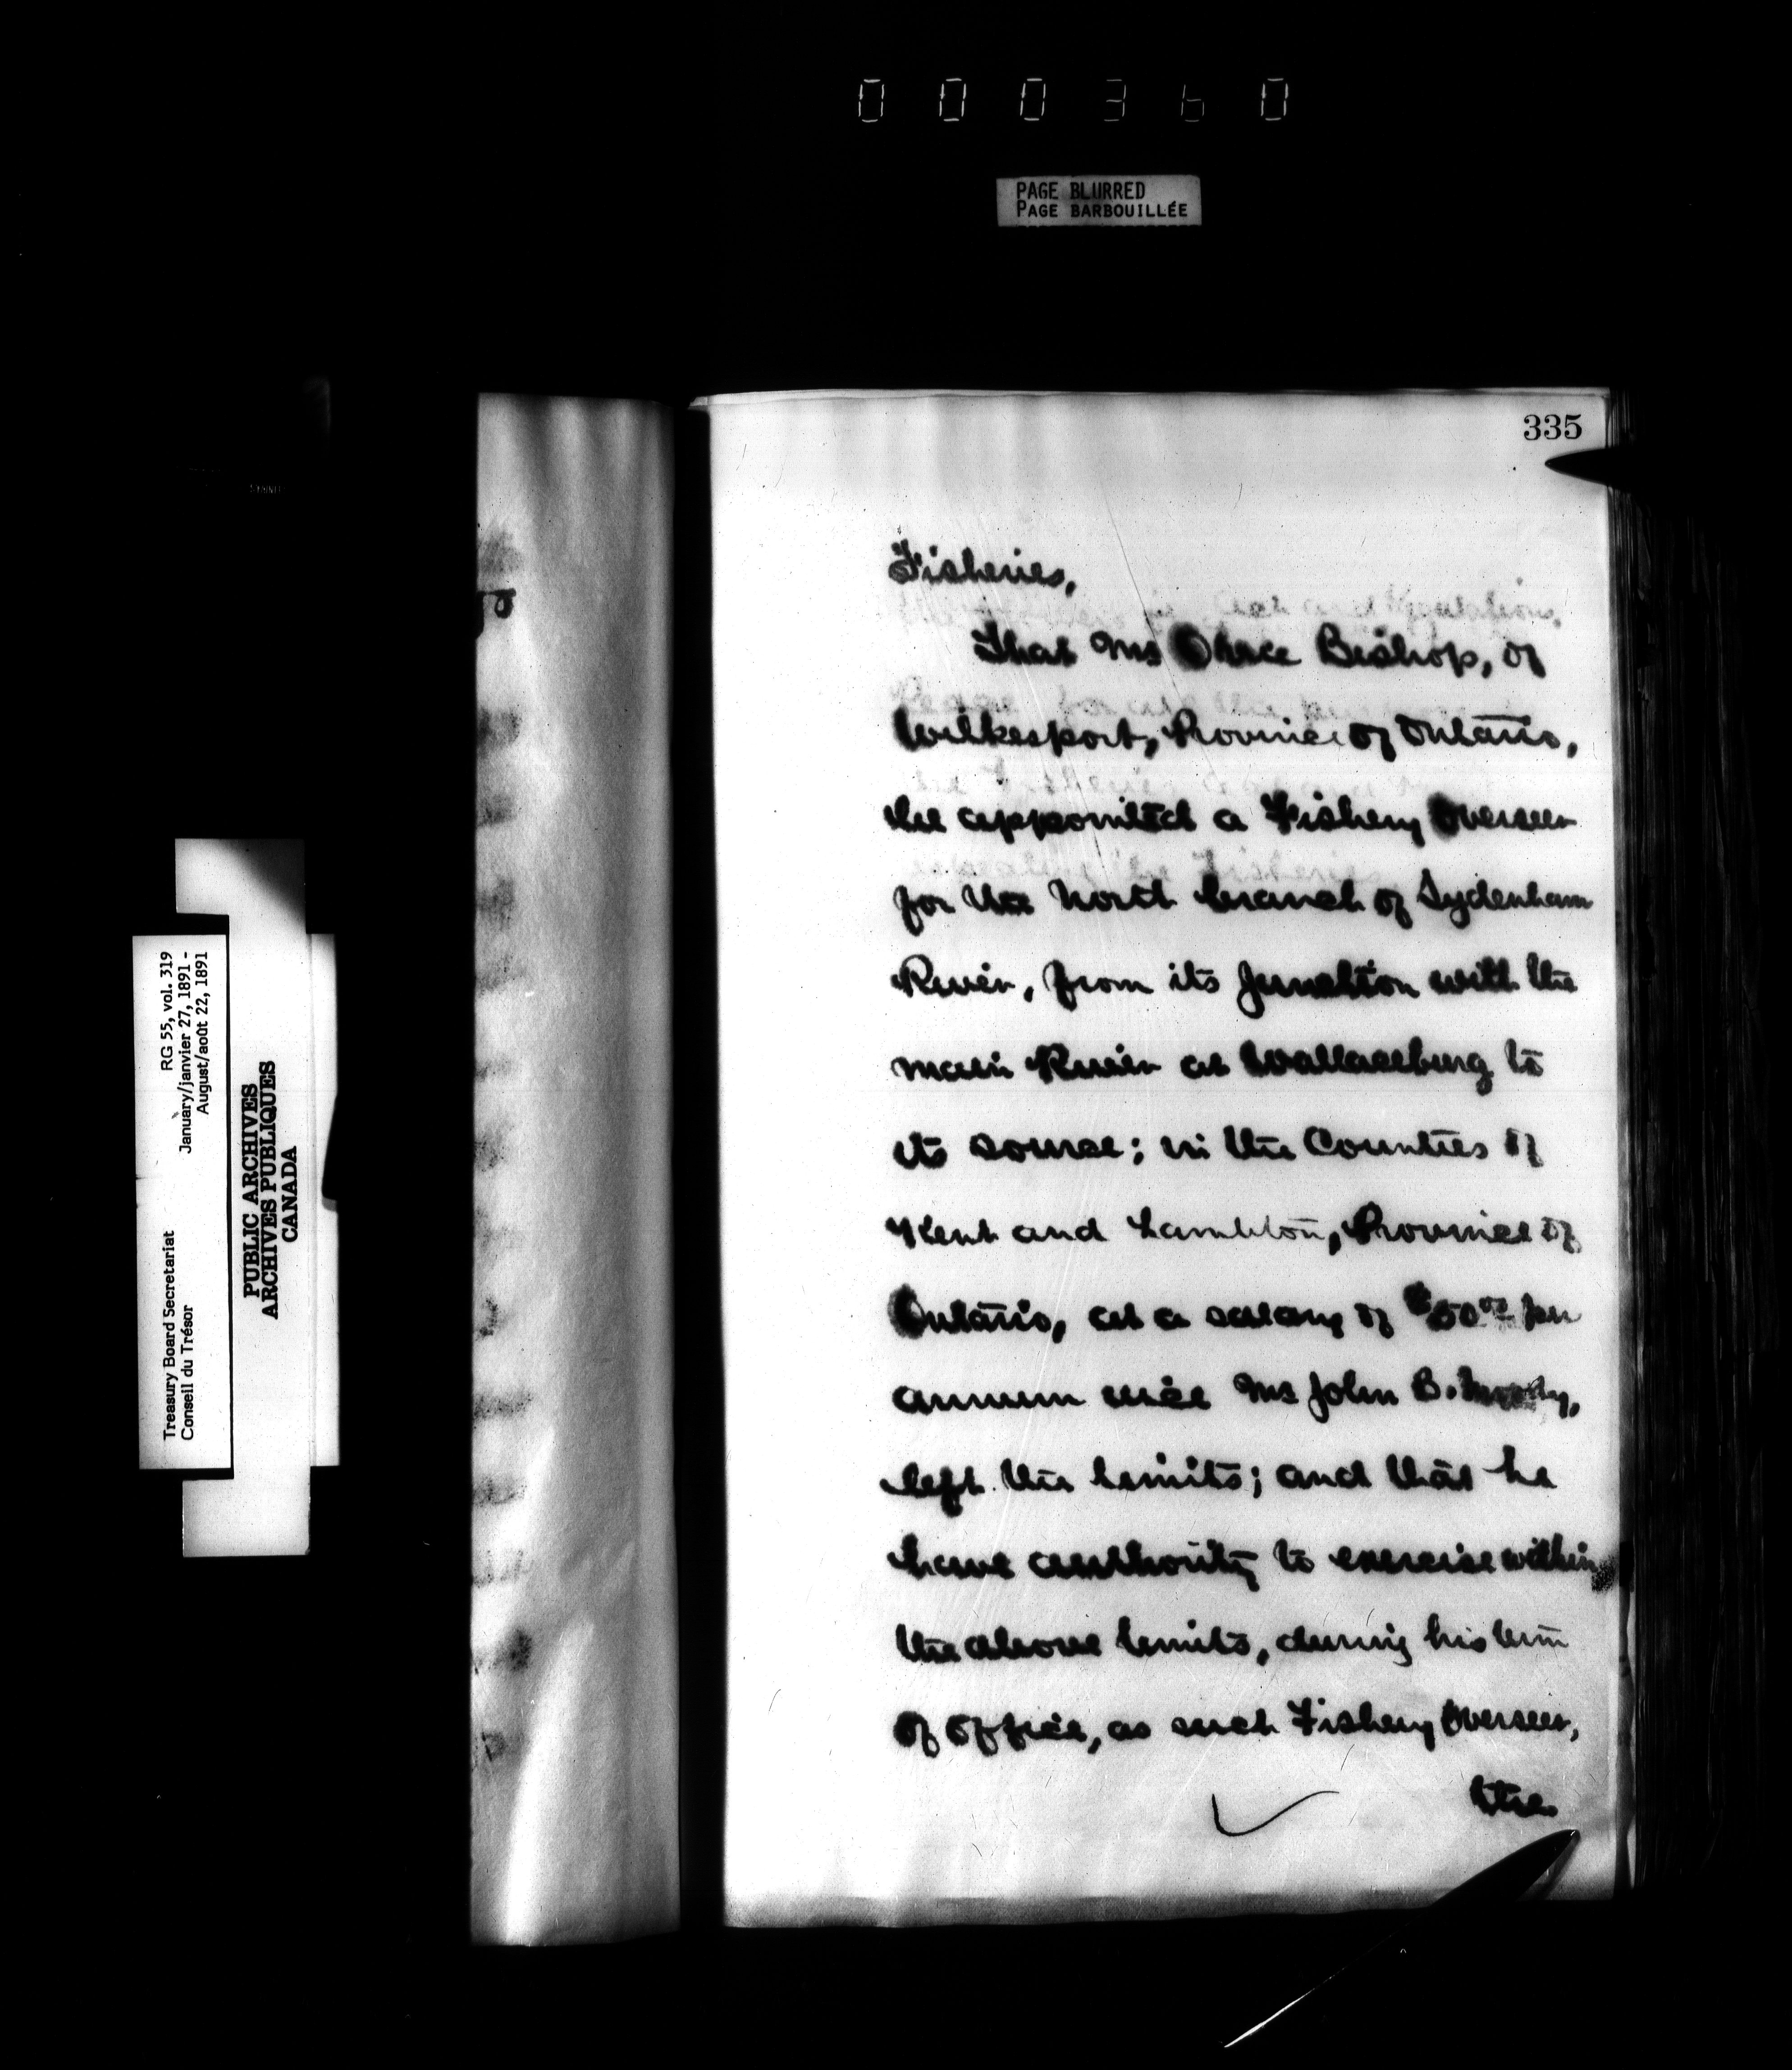 000360
PAGE BLURRED
PAGE BARBOUILLÉE
335
Fisheries,
That Mr Bishop, of
Wilkesport, Province of Ontario,
be appointed a Fishery Overseer
for the North branch of Sydenham
River, from its junction with the
main River at Wallaceburg to
its source; in the Counties of
Kent and Lambton, Province of
Ontario, at a salary of $50.00 per
annum vice Mr John B.
left the limits; and that he
have authority to exercise within
the above limits, during his term
of office, as such Fishery Overseer,
the
Treasury Board Secretariat RG 55, vol. 319
Conseil du Trésor January/janvier 27, 1891 -
August/août 22, 1891
PUBLIC ARCHIVES
ARCHIVES PUBLIQUES
CANADA